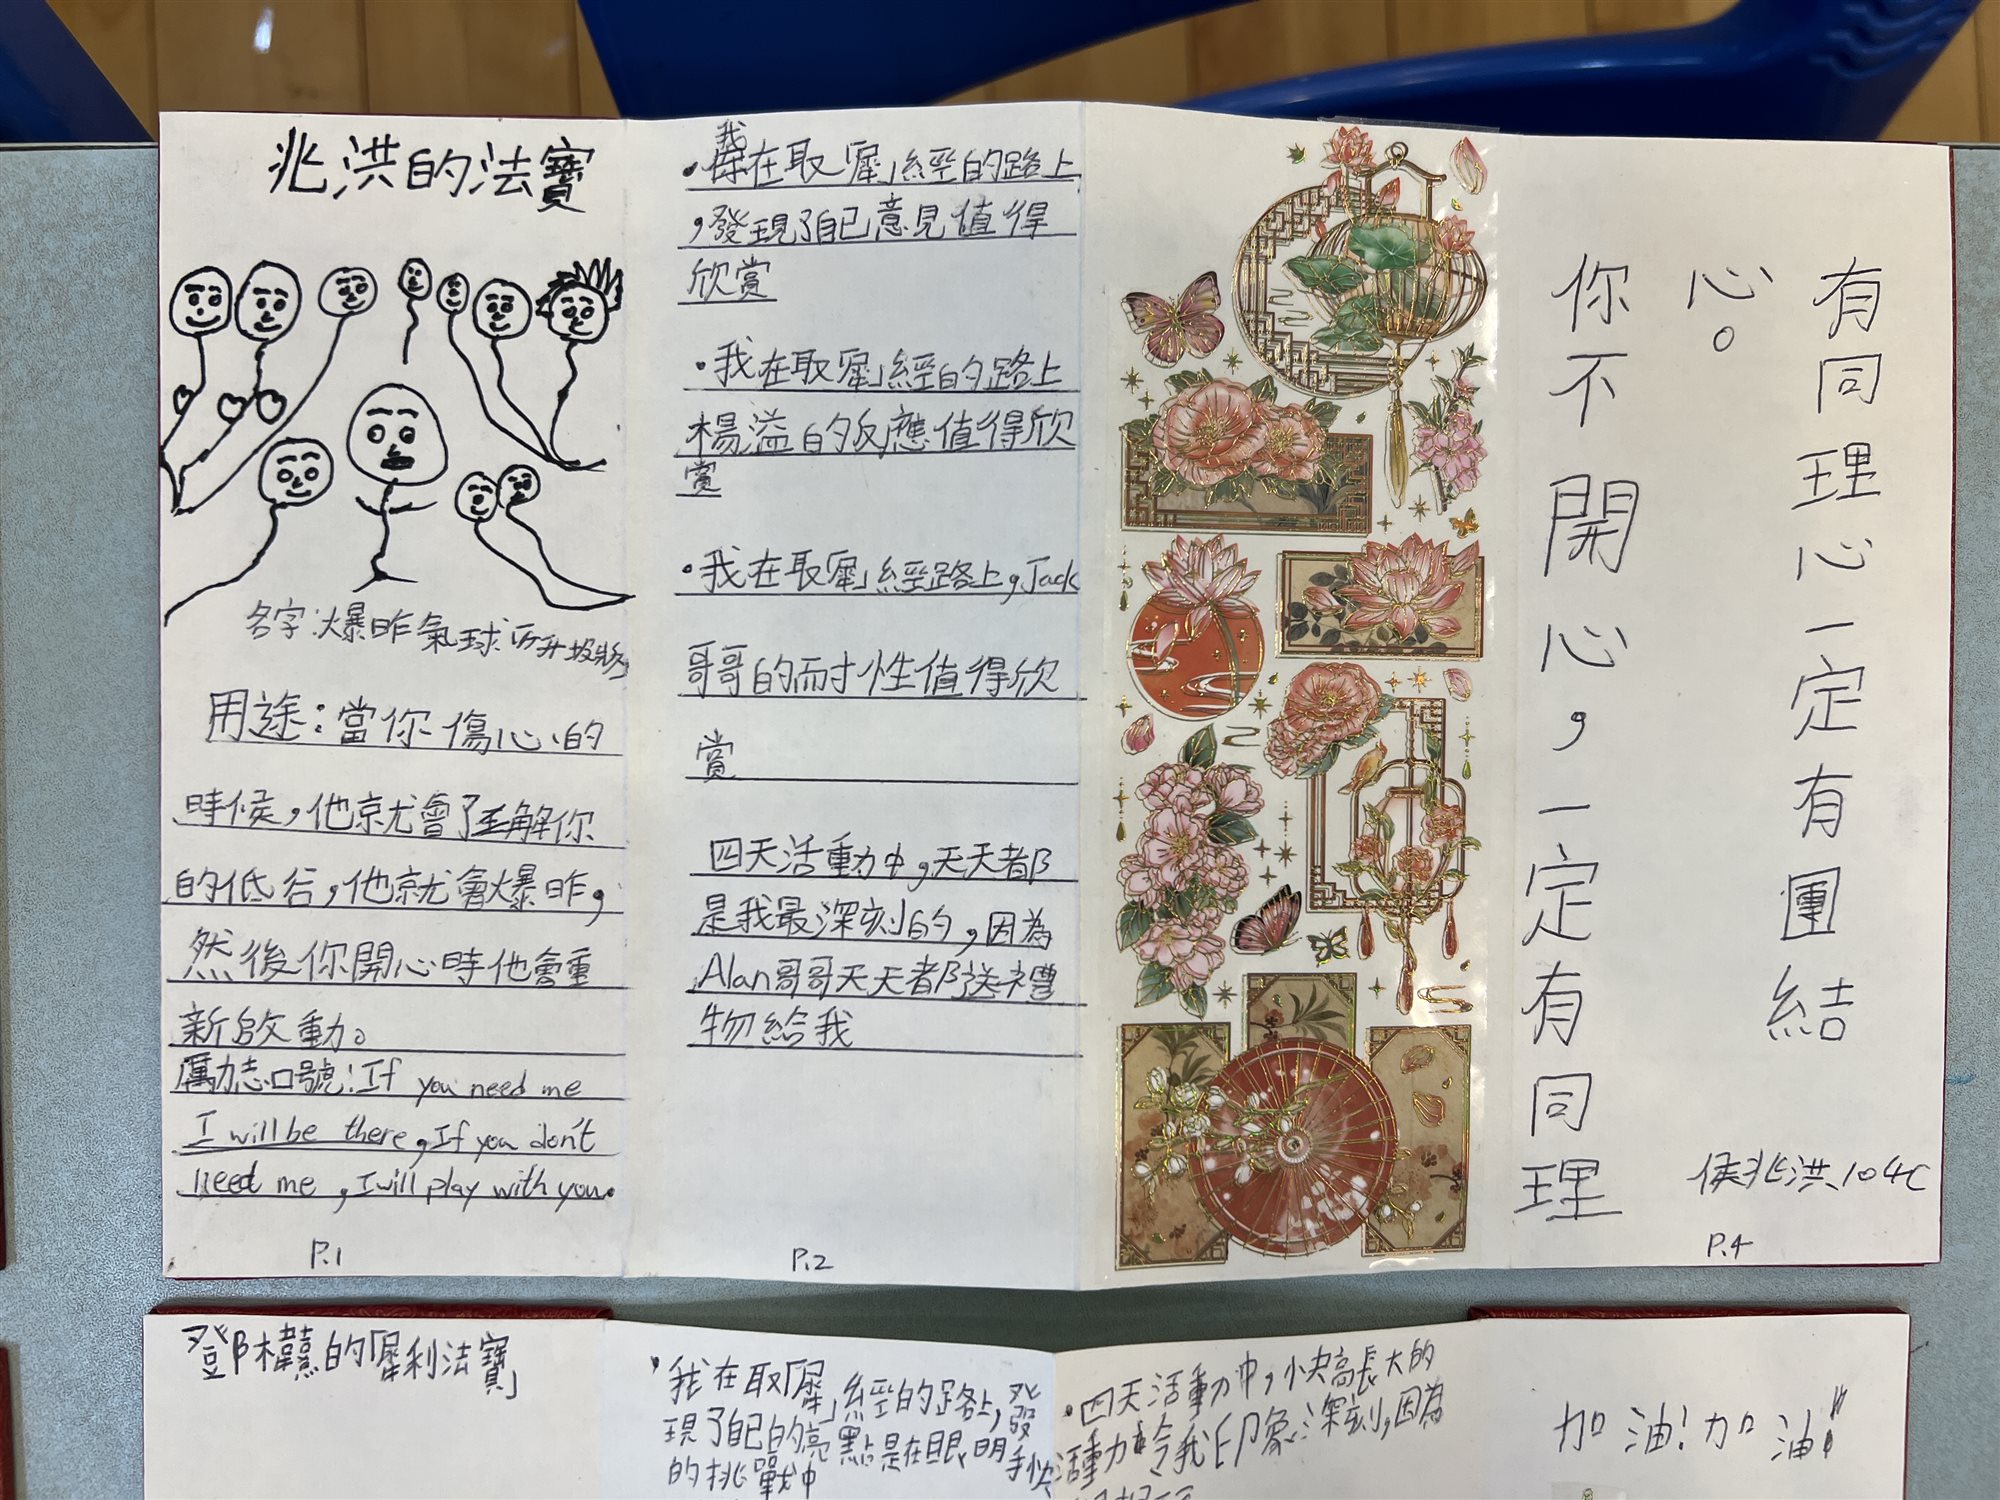 兆洪的法寶
名字:爆昨氣球
用途:當你傷心的
時候,他就會了解你
的低谷,他就會爆昨,
然後你開心時他會重
新啟動。
厲志口號!If you need me
I will be there,If you don't
need me,I will play with you.
P.1
我
·在取犀」經的路上
,發現了自已意見值得
欣賞
·我在取犀」經的路上
楊溢的反應值得欣
賞
·我在取犀」經路上,Jack
哥哥的耐性值得欣
賞
四天活動中,天天都
是我最深刻的,因為
Alan哥哥天天都送禮
物給我
P.2
有同理心一定有團結
心。
你不開心,一定有同理
侯兆洪104C
P.4
的「犀利法寶」
·我在取「犀」經的路上,發
現了自己的亮點是在眼明手快
的挑戰中
·四天活動中,快高長大的
活動令我印象深刻,因為
加油!加油!!